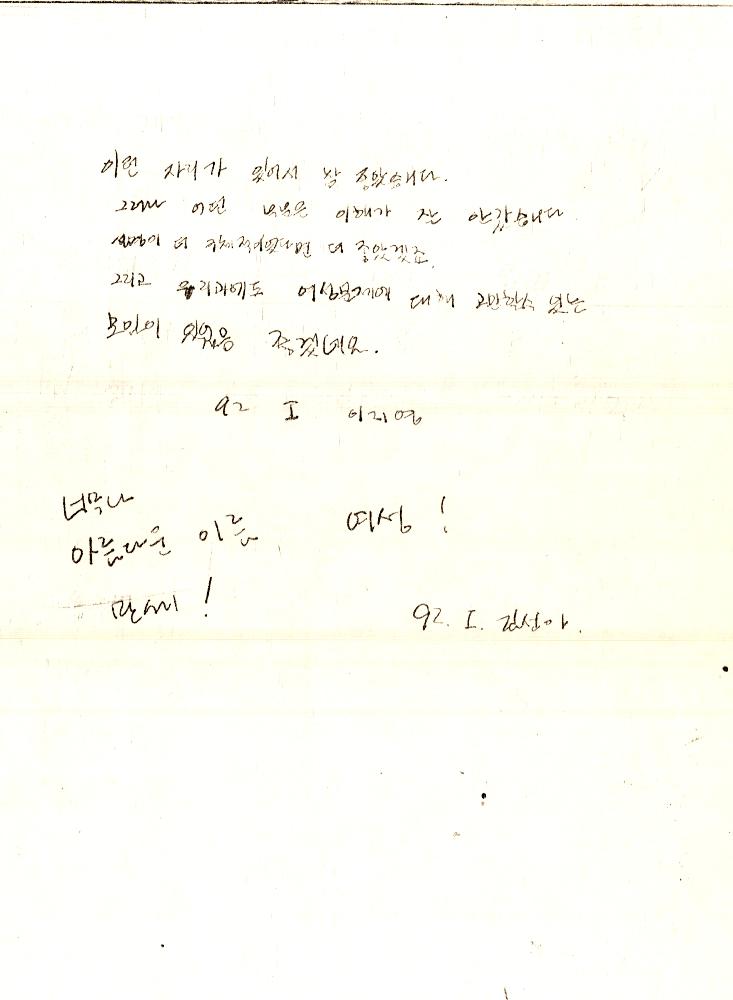 이런 자리가 있어서 참 좋았습니다.
그러나 어떤 부분은 이해가 잘 안갔습니다
설명이 더 구체적이었다면 더 좋았겠죠.
그리고 우리과에도 여성문제에 대해 고민할수 있는
모임이 있음 좋겠네요.
92 I 이지영
너무나
아름다운 이름 여성!
만세!
92. I. 김선아.